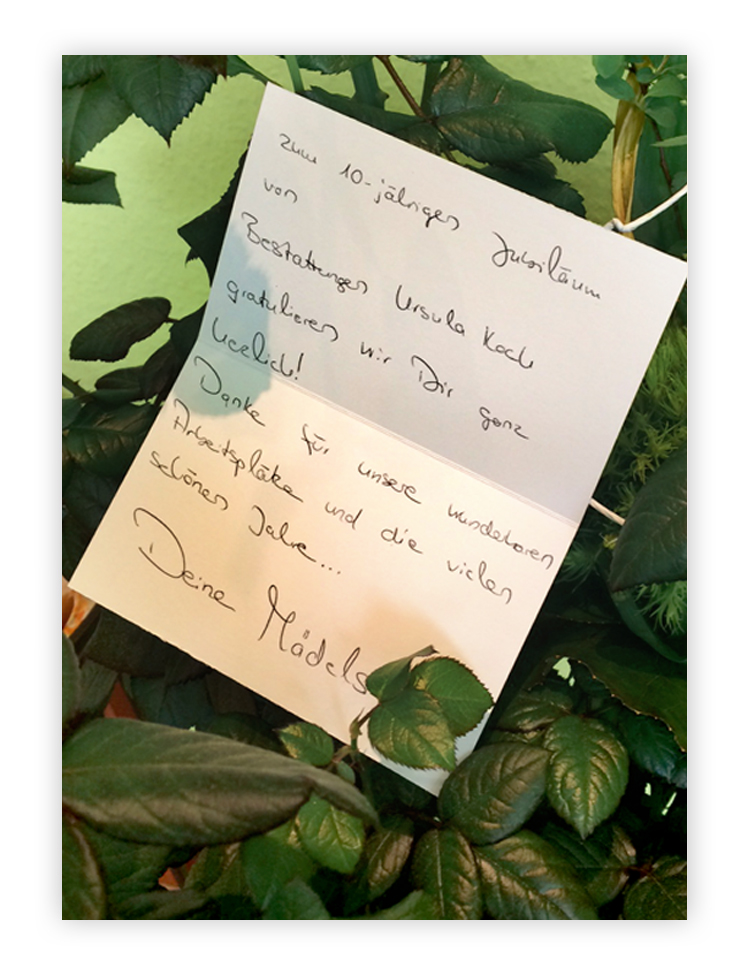 Zum 10-jährigen Jubiläum
von
Bestattungen Ursula Koch
gratulieren wir Dir ganz
herzlich!
Danke für unsere wunderbaren
Arbeitsplätze und die vielen
schönen Jahre...
Deine Mädels